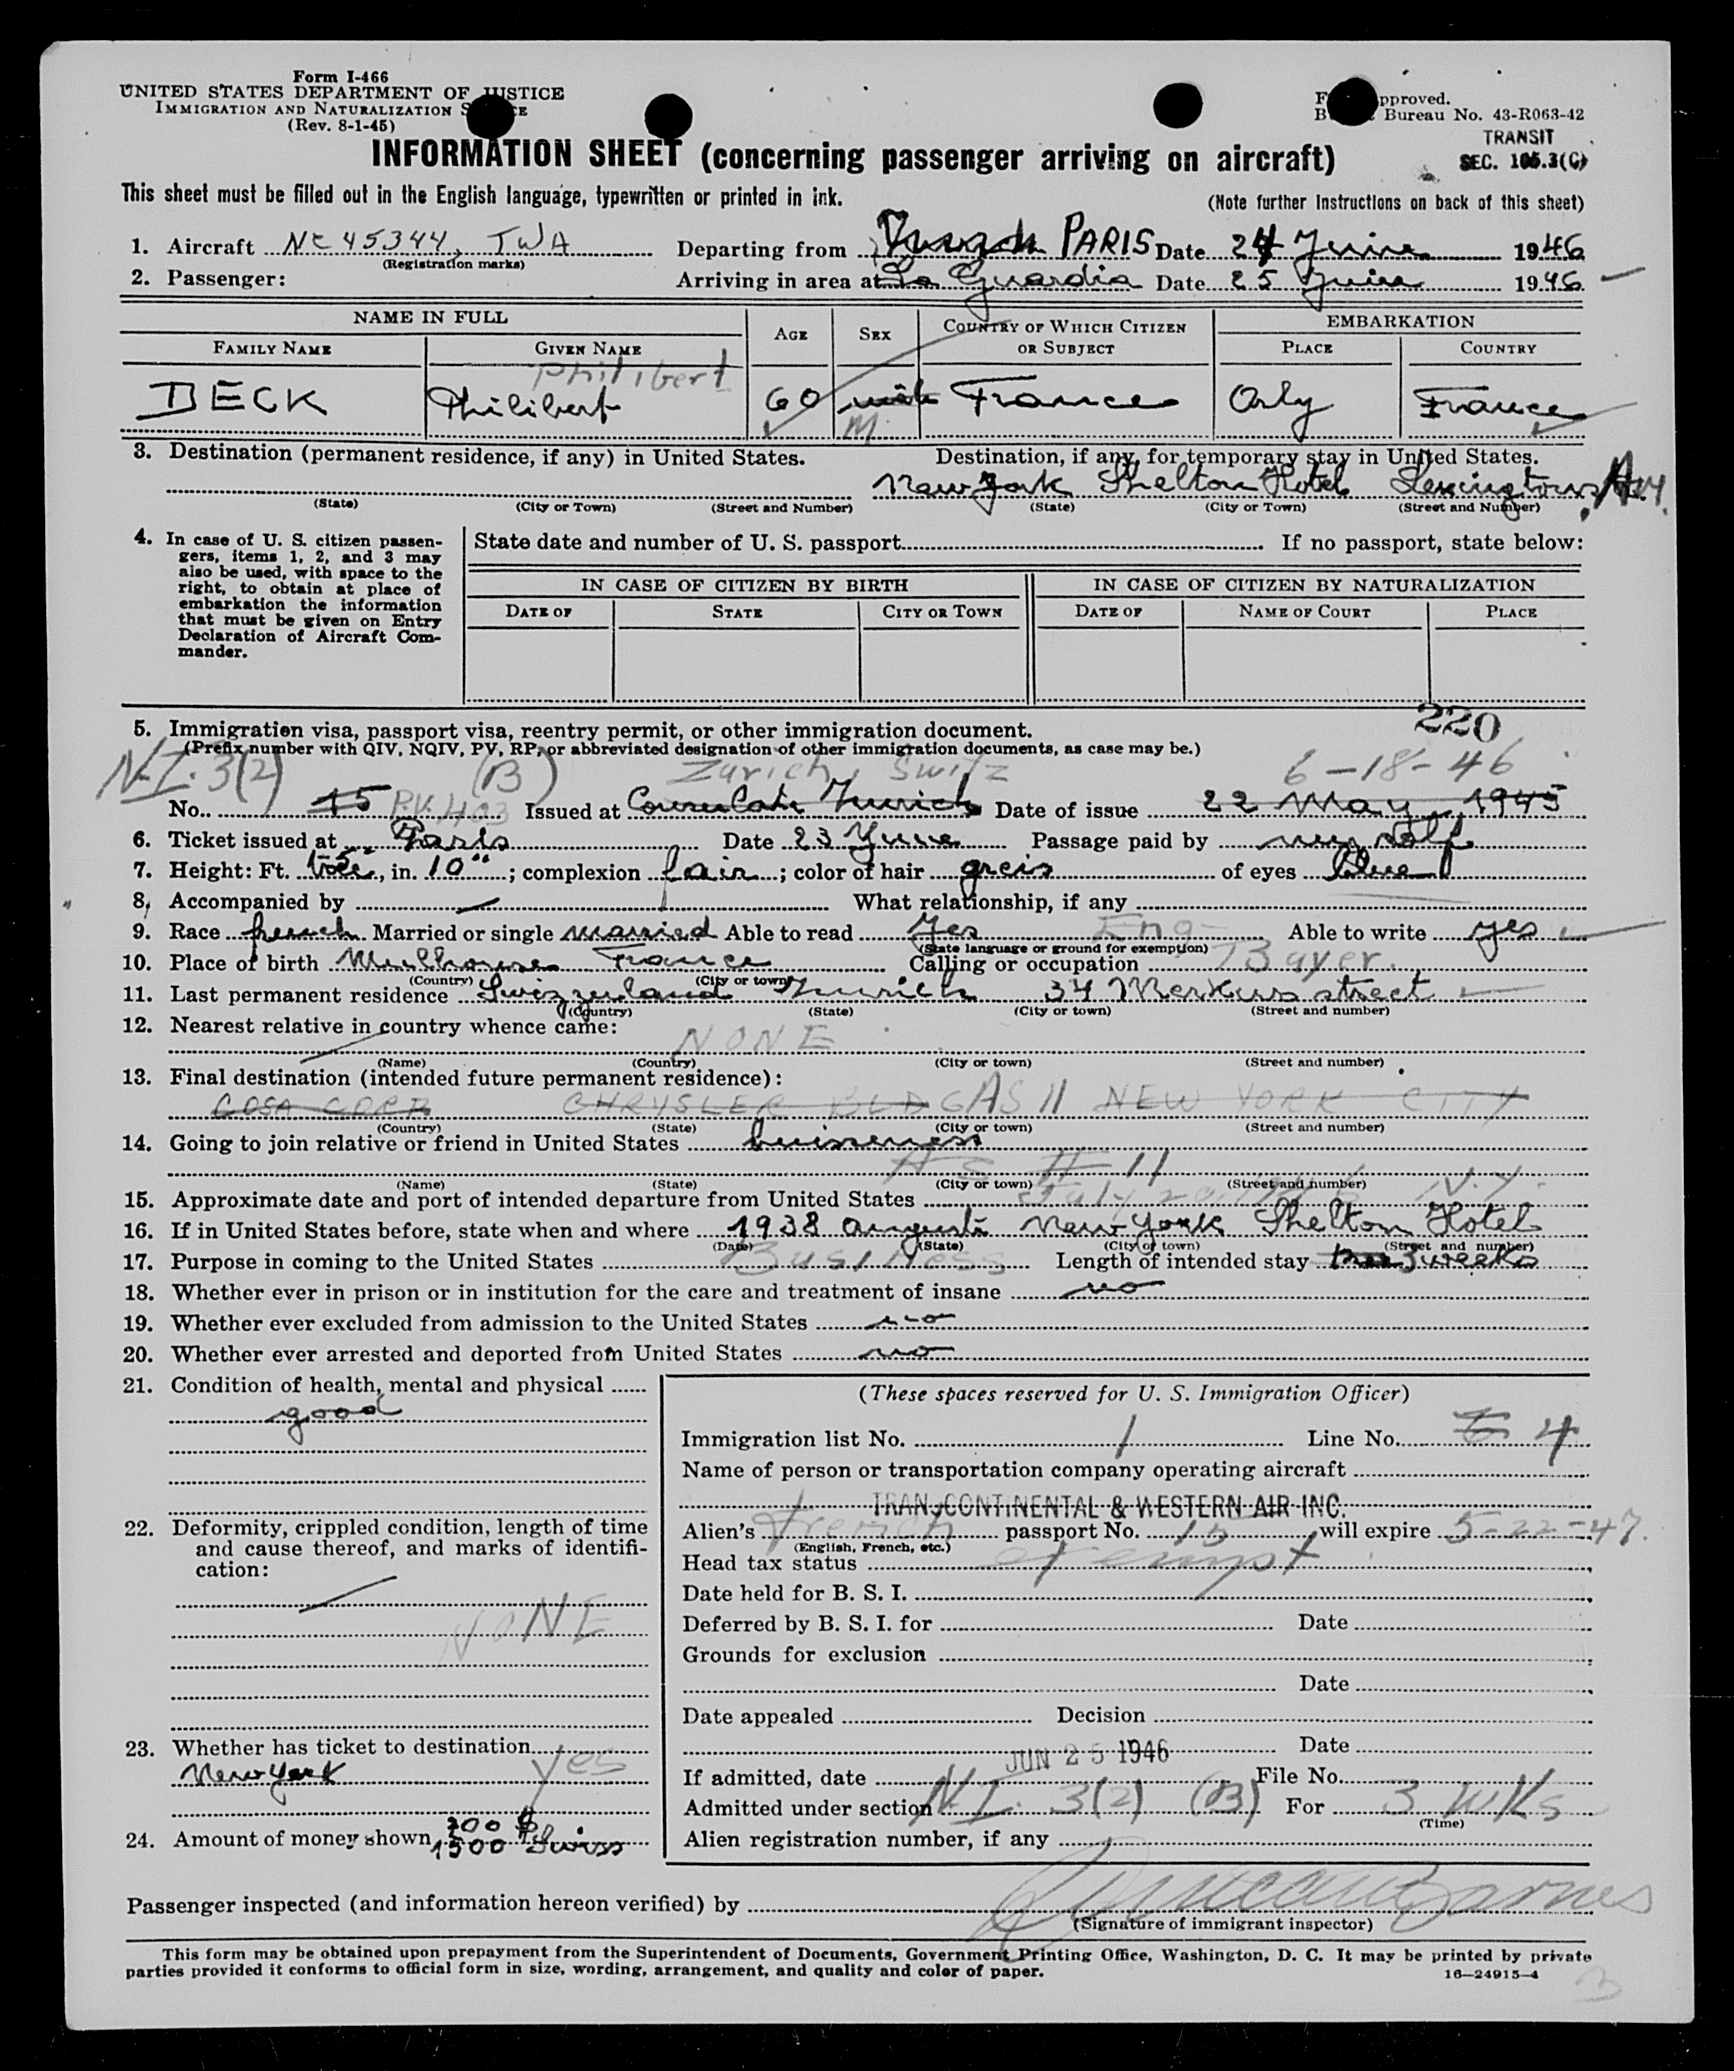 Form I-466
UNITED STATES DEPARTMENT OF JUSTICE
IMMIGRATION AND NATURALIZATION SERVICE
(Rev. 8-1-45)
Form approved.
Budget Bureau No. 43-R063-42
TRANSIT
SEC. 105.3(C)
INFORMATION SHEET (concerning passenger arriving on aircraft)
This sheet must be filled out in the English language, typewritten or printed in ink. (Note further instructions on back of this sheet)
1. Aircraft NC 45344, TWA Departing from PARIS Date 24 June 1946
(Registration marks)
2. Passenger: Arriving in area at La Guardia Date 25 June 1946
NAME IN FULL AGE SEX COUNTRY OF WHICH CITIZEN OR SUBJECT EMBARKATION
FAMILY NAME GIVEN NAME PLACE COUNTRY
Philibert
BECK Philibert 60 male France Orly France
M
3. Destination (permanent residence, if any) in United States. Destination, if any, for temporary stay in United States.
New York Shelton Hotel Lexington Av.
(State) (City or Town) (Street and Number) (State) (City or Town) (Street and Number)
4. In case of U. S. citizen passengers, items 1, 2, and 3 may also be used, with space to the right, to obtain at place of embarkation the information that must be given on Entry Declaration of Aircraft Commander.
State date and number of U. S. passport If no passport, state below:
IN CASE OF CITIZEN BY BIRTH IN CASE OF CITIZEN BY NATURALIZATION
DATE OF STATE CITY OR TOWN DATE OF NAME OF COURT PLACE
220
5. Immigration visa, passport visa, reentry permit, or other immigration document.
(Prefix number with QIV, NQIV, PV, RP, or abbreviated designation of other immigration documents, as case may be.)
N.I. 3(2) (B) Zurich, Switz 6-18-46
No. 15 P.V. 403 Issued at Consulate Zurich Date of issue 22 May 1945
6. Ticket issued at Paris Date 23 June Passage paid by my self
7. Height: Ft. 5, in. 10"; complexion fair; color of hair greis of eyes blue
8. Accompanied by — What relationship, if any
9. Race french Married or single married Able to read Yes Eng- Able to write yes
(State language or ground for exemption)
10. Place of birth Mulhouse France Calling or occupation Buyer.
(Country) (City or town)
11. Last permanent residence Swizzerland Zurich 34 Merkurstreet
(Country) (State) (City or town) (Street and number)
12. Nearest relative in country whence came:
NONE
(Name) (Country) (City or town) (Street and number)
13. Final destination (intended future permanent residence):
COSA CORP CHRYSLER BLDG AS 11 NEW YORK CITY
(Country) (State) (City or town) (Street and number)
14. Going to join relative or friend in United States buiseness
AS # 11
(Name) (State) (City or town) (Street and number)
15. Approximate date and port of intended departure from United States July 20, 1946 N.Y.
16. If in United States before, state when and where 1938 august New York Shelton Hotel
(Date) (State) (City or town) (Street and number)
17. Purpose in coming to the United States Business Length of intended stay 3 weeks
18. Whether ever in prison or in institution for the care and treatment of insane no
19. Whether ever excluded from admission to the United States no
20. Whether ever arrested and deported from United States no
21. Condition of health, mental and physical
good
22. Deformity, crippled condition, length of time and cause thereof, and marks of identification:
NONE
23. Whether has ticket to destination yes
New York
24. Amount of money shown 200 $
1500 Swiss
(These spaces reserved for U. S. Immigration Officer)
Immigration list No. 1 Line No. 4
Name of person or transportation company operating aircraft
TRANSCONTINENTAL & WESTERN AIR INC.
Alien's French passport No. 15 will expire 5-22-47.
(English, French, etc.)
Head tax status exempt
Date held for B. S. I.
Deferred by B. S. I. for Date
Grounds for exclusion
Date
Date appealed Decision
Date
If admitted, date JUN 25 1946 File No.
Admitted under section N.I. 3(2) (B) For 3 wks
(Time)
Alien registration number, if any
Passenger inspected (and information hereon verified) by Duncan Barnes
(Signature of immigrant inspector)
This form may be obtained upon prepayment from the Superintendent of Documents, Government Printing Office, Washington, D. C. It may be printed by private
parties provided it conforms to official form in size, wording, arrangement, and quality and color of paper. 16—24915-4
3